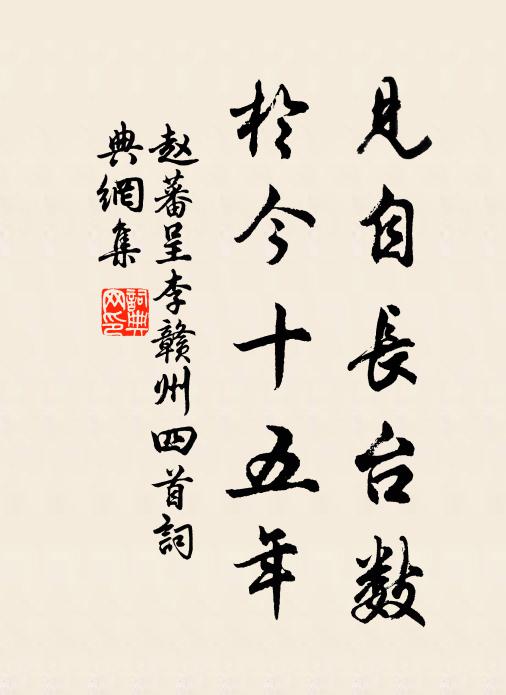 見自長台數
於今十五年
赵蕃呈李赣州四首詞
典網集
詞典網印